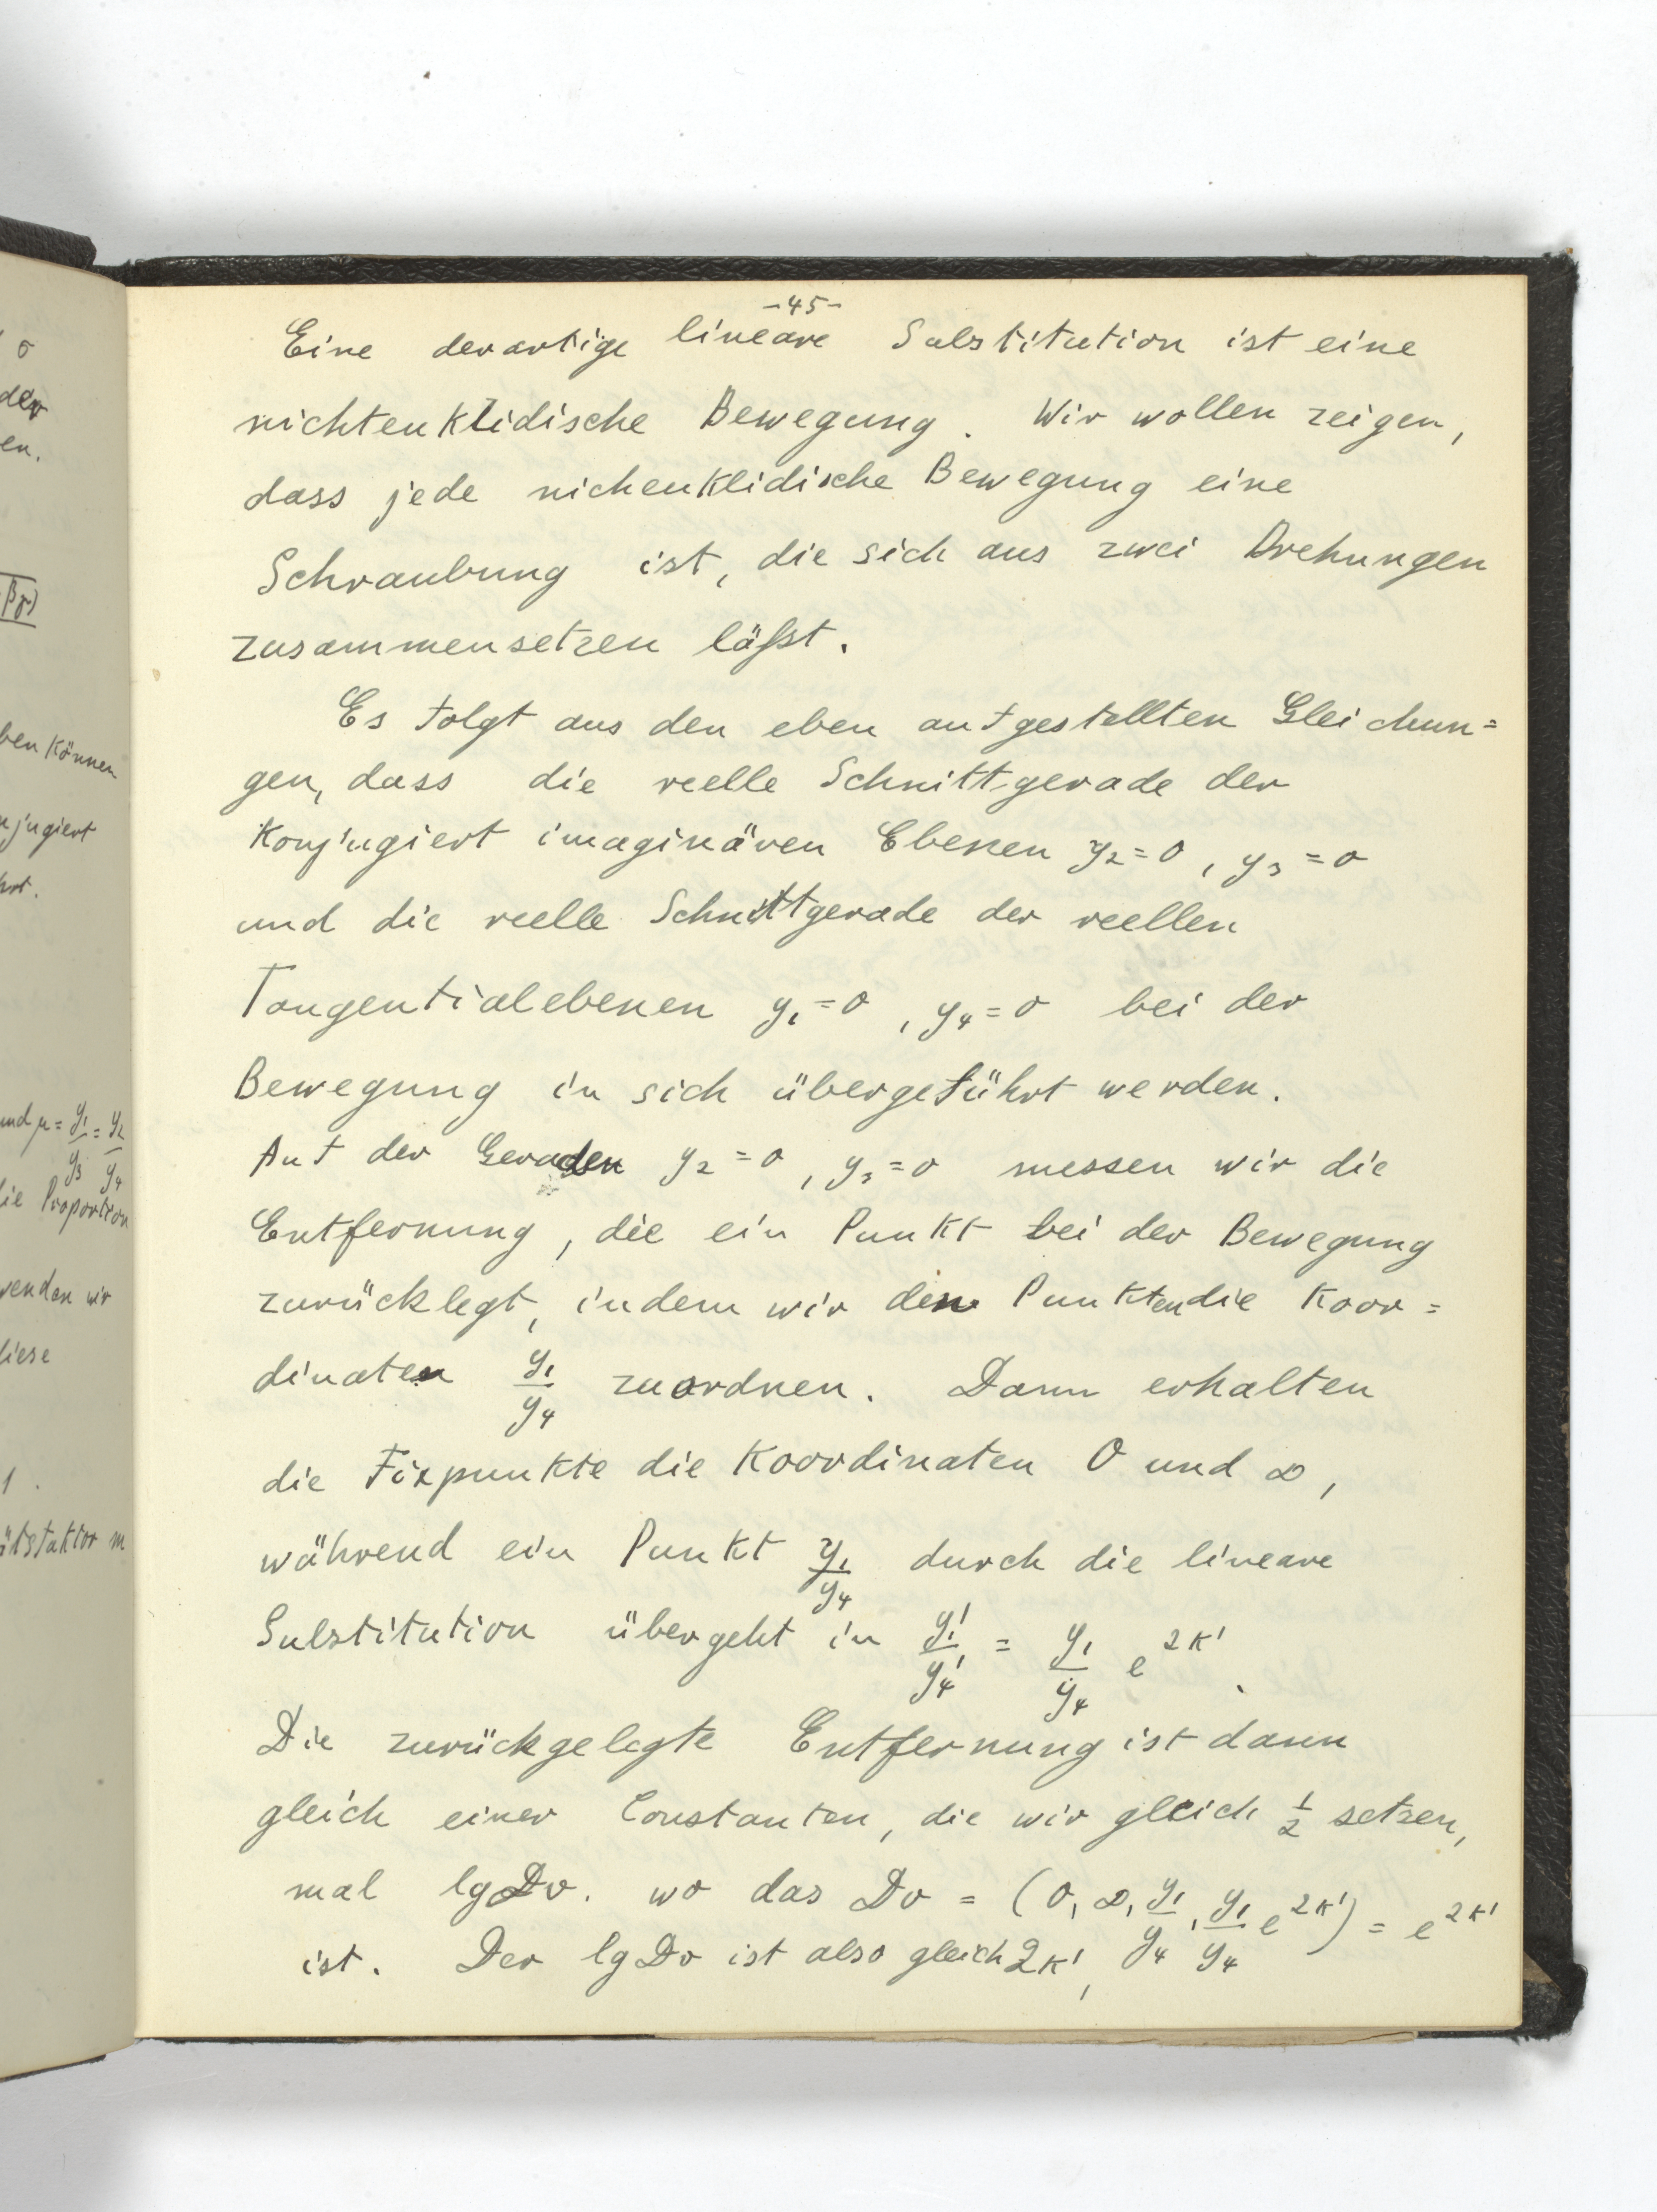 -45-
Eine derartige lineare Substitution ist eine
nichteuklidische Bewegung. Wir wollen zeigen,
dass jede nicheuklidische Bewegung eine
Schraubung ist, die sich aus zwei Drehungen
zusammensetzen läßt.
Es folgt aus den eben aufgestellten Gleichun=
gen, dass die reelle Schnittgerade der
konjugiert imaginären Ebenen y₂=0, y₃=0
und die reelle Schnittgerade der reellen
Tangentialebenen y₁=0, y₄=0 bei der
Bewegung in sich übergeführt werden.
Auf der Geraden y₂=0, y₃=0 messen wir die
Entfernung, die ein Punkt bei der Bewegung
zurücklegt, indem wir den Punkten die Koor=
dinaten y₁/y₄ zuordnen. Dann erhalten
die Fixpunkte die Koordinaten 0 und ∞,
während ein Punkt y₁/y₄ durch die lineare
Substitution übergeht in y₁'/y₄' = y₁/y₄ e^2K'.
Die zurückgelegte Entfernung ist dann
gleich einer Constanten, die wir gleich 1/2 setzen,
mal lg Dv. wo das Dv = (0, ∞, y₁/y₄, y₁/y₄ e^2K') = e^2K'
ist. Der lg Dv ist also gleich 2K',
σ
der
en.
βγ)
ben können
njugiert
hrt.
und μ = y₁/y₃ = y₂/y₄
die Proportion
wenden wir
diese
1.
ätsfaktor m